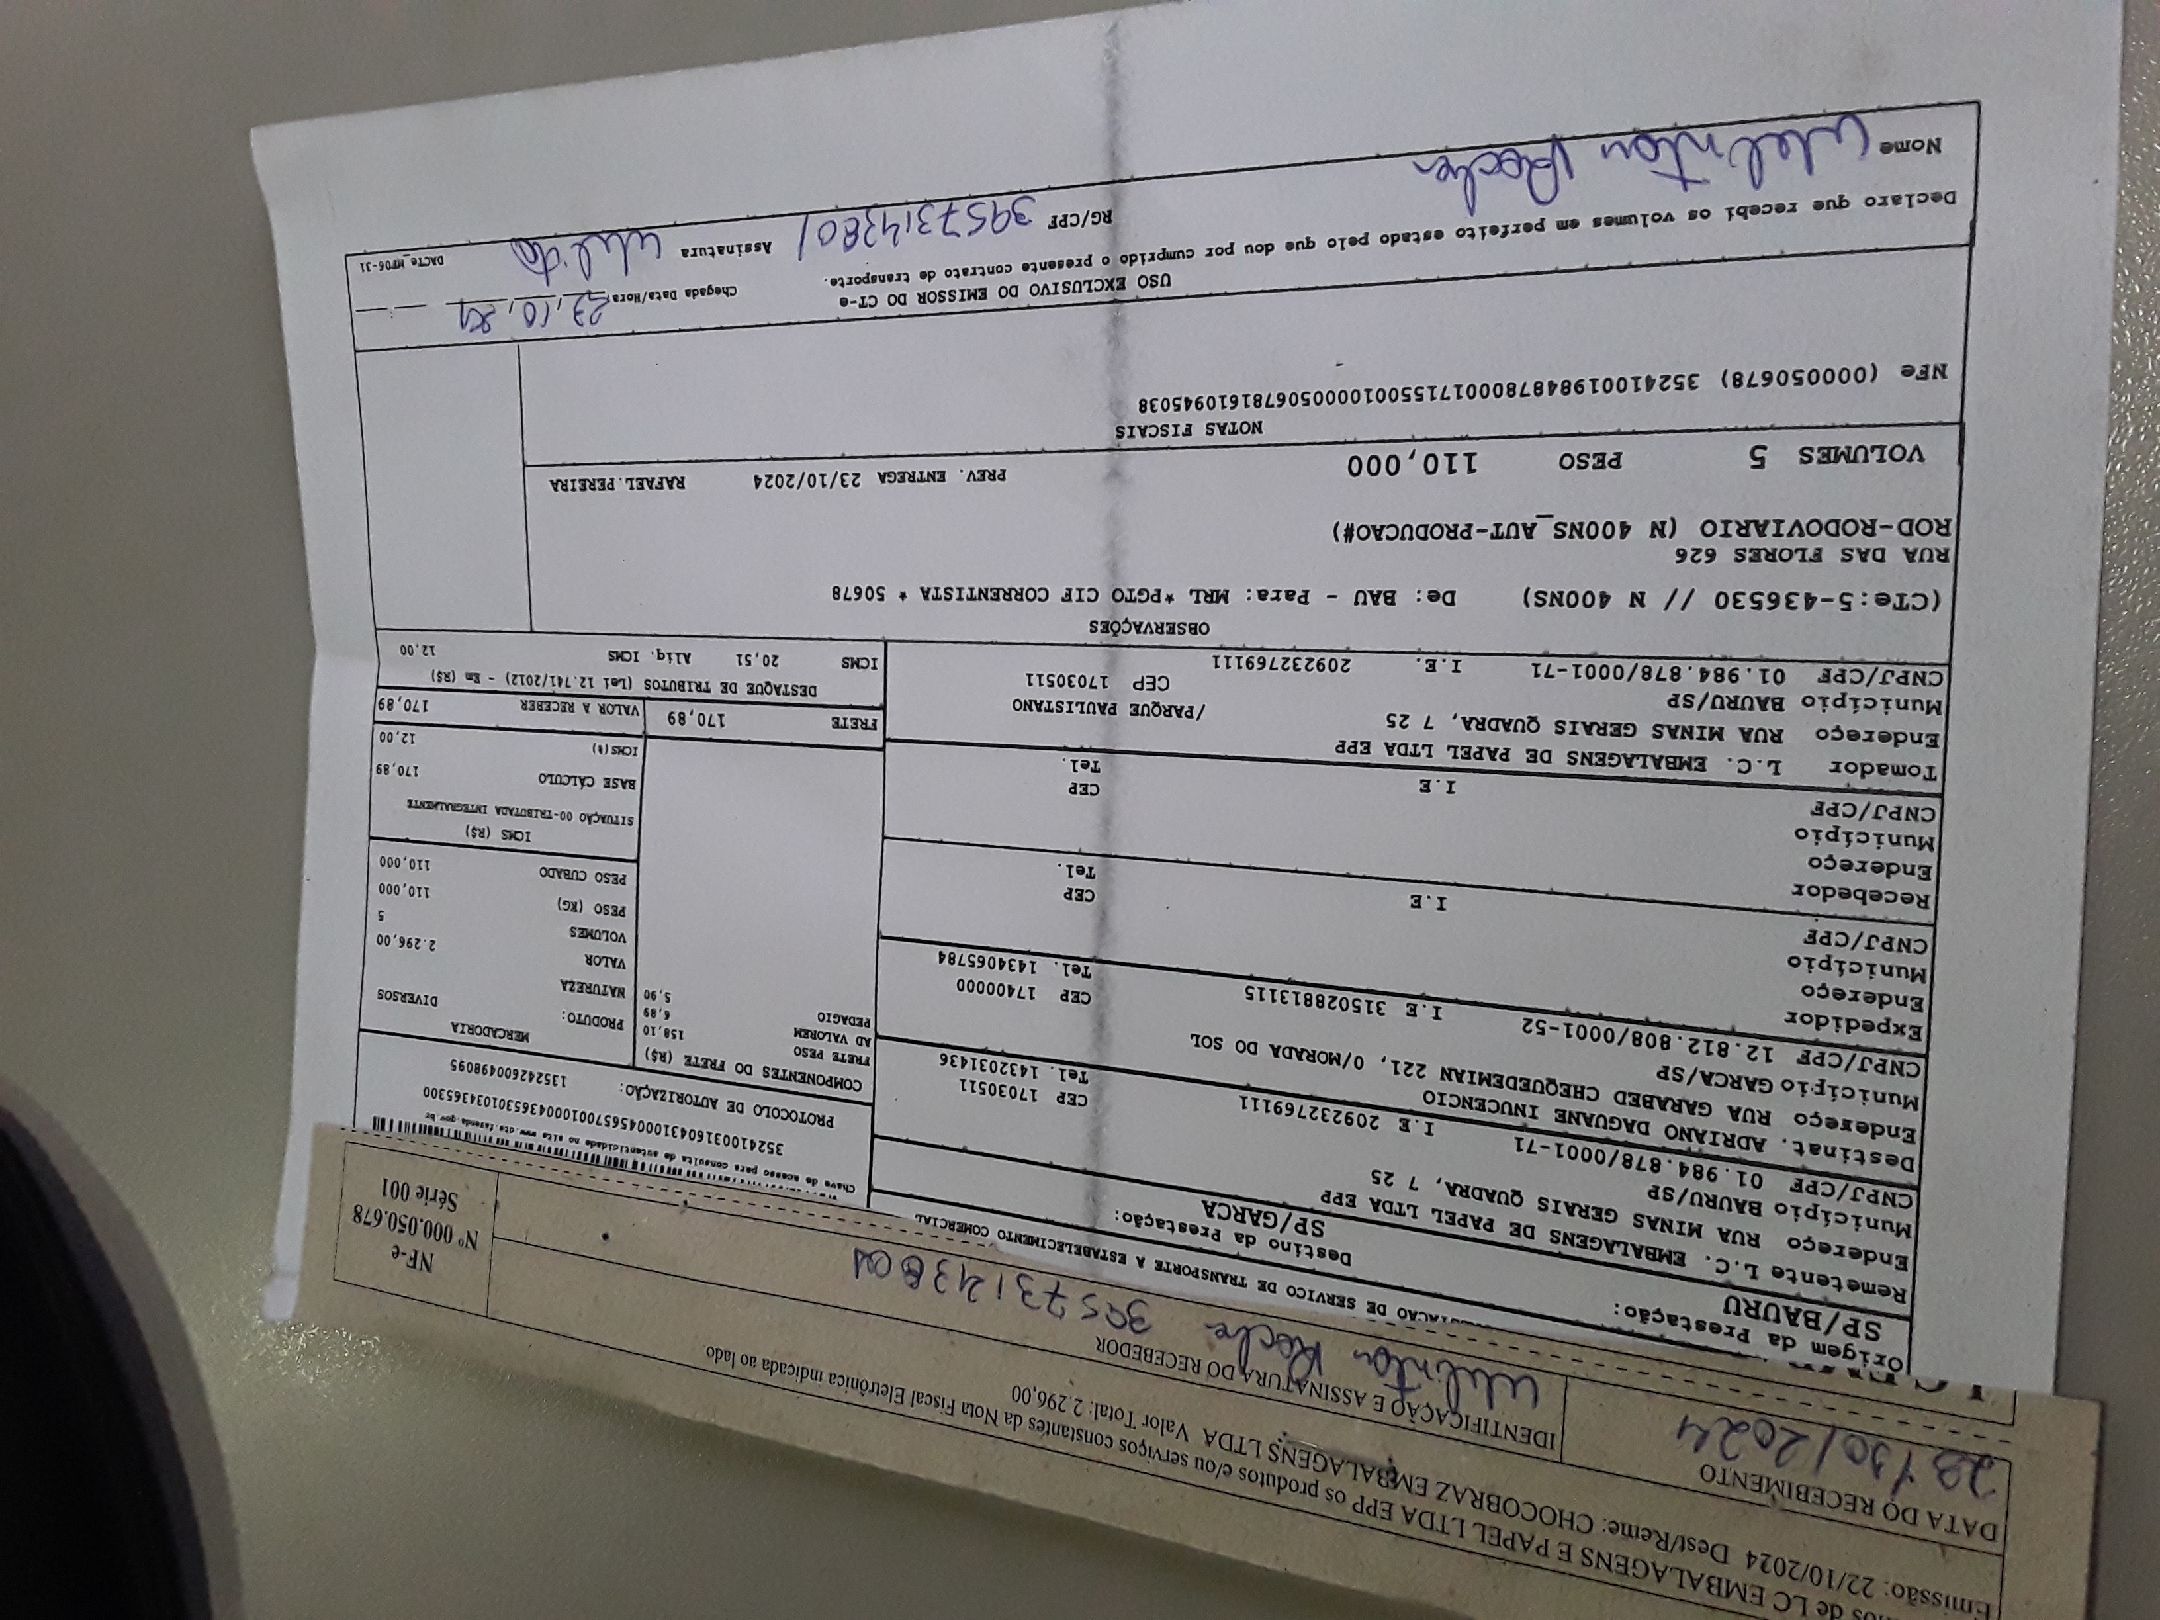 os de LC EMBALAGENS E PAPEL LTDA EPP os produtos e/ou serviços constantes da Nota Fiscal Eletrônica indicada ao lado
Emissão: 22/10/2024 Dest/Reme: CHOCOBRAZ EMBALAGENS LTDA Valor Total: 2.296,00
DATA DO RECEBIMENTO
IDENTIFICAÇÃO E ASSINATURA DO RECEBEDOR
Welinton Rocha 39573143801
NF-e
Nº 000.050.678
Série 001
DE SERVICO DE TRANSPORTE A ESTABELECIMENTO COMERCIAL
Origem da Prestação:
SP/BAURU
Destino da Prestação:
SP/GARCA
Chave de acesso para consulta de autenticidade no site www.cte.fazenda.gov.br
PROTOCOLO DE AUTORIZAÇÃO:
135242600498095
Remetente L.C. EMBALAGENS DE PAPEL LTDA EPP
Endereço RUA MINAS GERAIS QUADRA, 7 25
Município BAURU/SP
CEP 17030511
CNPJ/CPF 01.984.878/0001-71
I.E 209232769111
Tel. 1432031436
Destinat. ADRIANO DAGUANE INUCENCIO
Endereço RUA GARABED CHEQUEDEMIAN 221, 0/MORADA DO SOL
Município GARCA/SP
CEP 17400000
CNPJ/CPF 12.812.808/0001-52
I.E 315028813115
Tel. 1434065784
Expedidor
Endereço
Município
CEP
CNPJ/CPF
I.E
Tel.
Recebedor
Endereço
Município
CEP
CNPJ/CPF
I.E
Tel.
Tomador L.C. EMBALAGENS DE PAPEL LTDA EPP
Endereço RUA MINAS GERAIS QUADRA, 7 25
/PARQUE PAULISTANO
Município BAURU/SP
CEP 17030511
CNPJ/CPF 01.984.878/0001-71
I.E. 209232769111
COMPONENTES DO FRETE (R$)
FRETE PESO 158,10
AD VALOREM 6,89
PEDAGIO 5,90
MERCADORIA
PRODUTO: DIVERSOS
NATUREZA
VALOR 2.296,00
VOLUMES 5
PESO (KG) 110,000
PESO CUBADO 110,000
ICMS (R$)
SITUAÇÃO 00-TRIBUTADA INTEGRALMENTE
BASE CÁLCULO 170,89
ICMS(%) 12,00
FRETE 170,89
VALOR A RECEBER 170,89
DESTAQUE DE TRIBUTOS (Lei 12.741/2012) - Em (R$)
ICMS 20,51 Aliq. ICMS 12,00
OBSERVAÇÕES
(CTe:5-436530 // N 400NS) De: BAU - Para: MRL *PGTO CIF CORRENTISTA * 50678
RUA DAS FLORES 626
ROD-RODOVIARIO (N 400NS_AUT-PRODUCAO#)
VOLUMES 5 PESO 110,000
PREV. ENTREGA 23/10/2024 RAFAEL.PEREIRA
NOTAS FISCAIS
NFe (000050678) 35241001984878000171550010000506781610945038
USO EXCLUSIVO DO EMISSOR DO CT-e
Declaro que recebi os volumes em perfeito estado pelo que dou por cumprido o presente contrato de transporte.
Chegada Data/Hora 23,10,24
Nome Welinton Rocha
RG/CPF 39573143801
Assinatura
DACTe_MF06-31